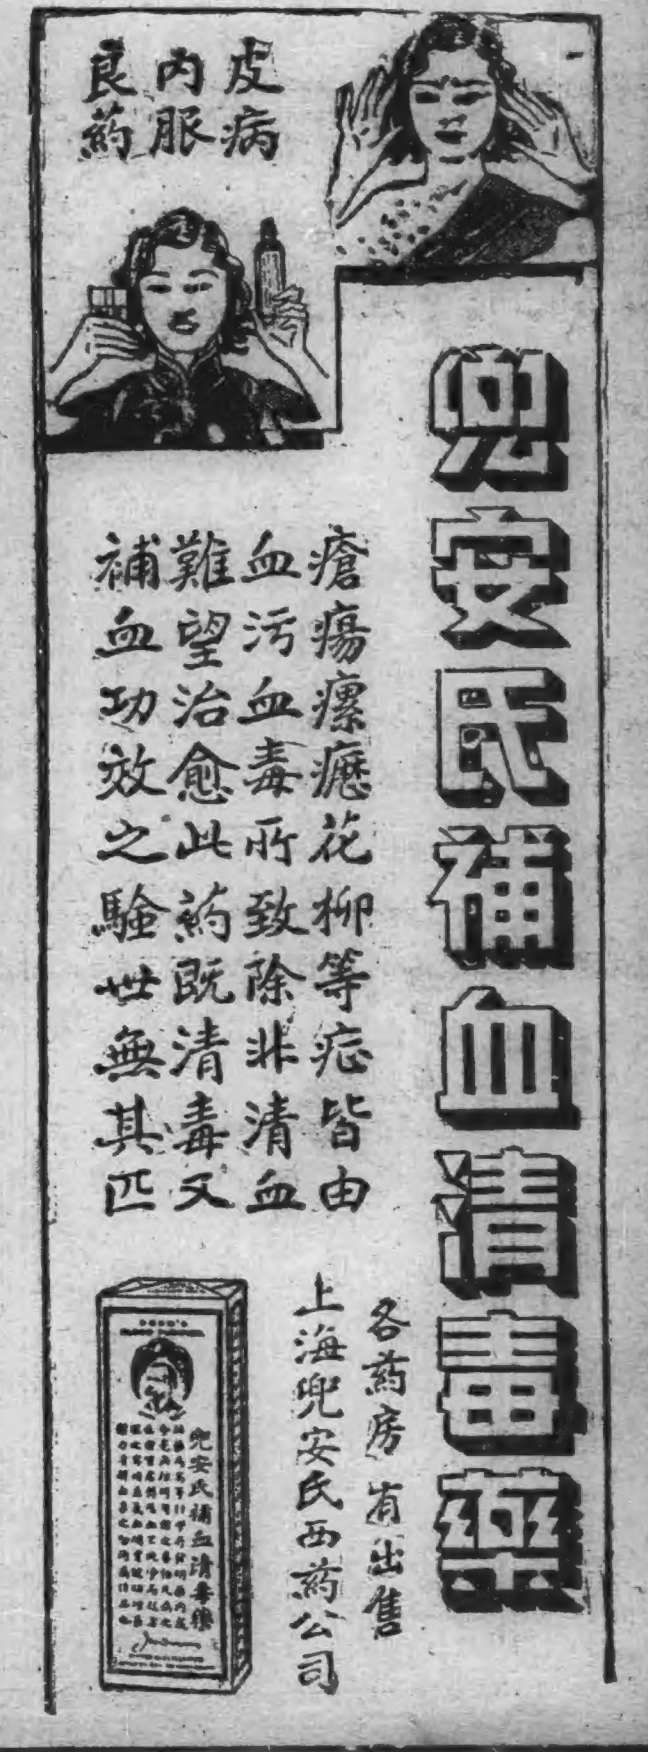 皮病
內服
良葯
兜安氏補血清毒藥
瘡瘍瘰癧花柳等症皆由
血污血毒所致除非清血
難望治愈此葯既清毒又
補血功效之驗世無其匹
各葯房有出售
上海兜安氏西葯公司
兜安氏補血清毒藥